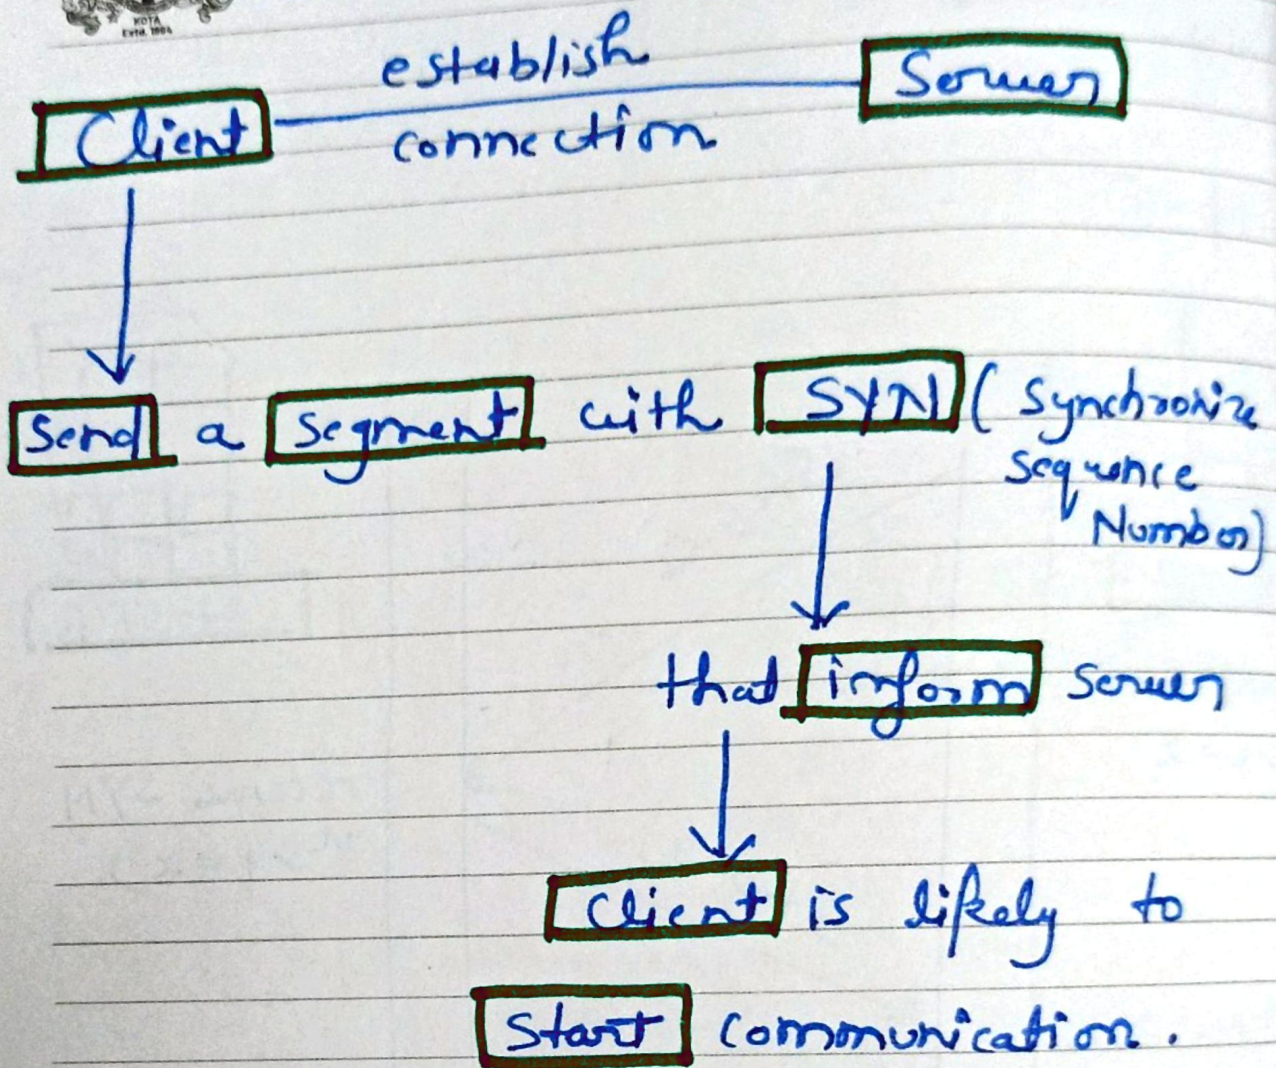 KOTA
Estd. 1984
establish
Client
Server
connection
Send a segment with SYN (Synchronize
sequence
Number)
that inform server
Client is likely to
Start communication.